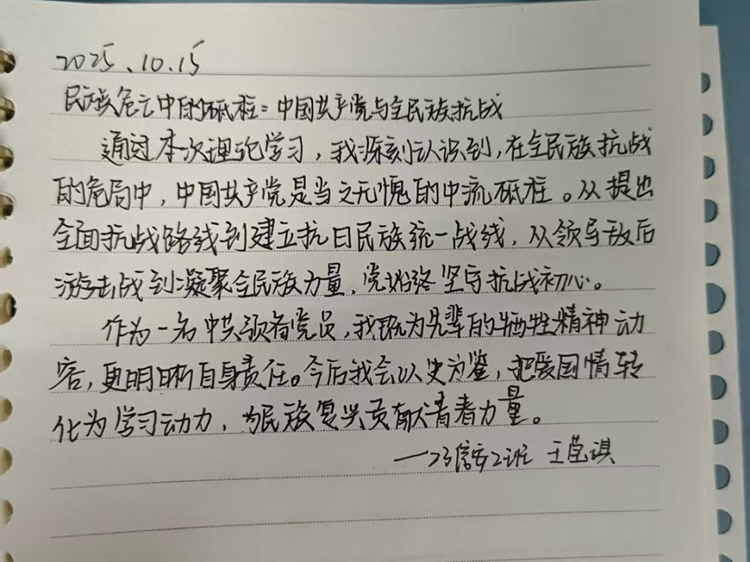 2025.10.15
民族危亡中的砥柱：中国共产党与全民族抗战
通过本次理论学习，我深刻认识到，在全民族抗战
的危局中，中国共产党是当之无愧的中流砥柱。从提出
全面抗战路线到建立抗日民族统一战线，从领导敌后
游击战到凝聚全民族力量，党始终坚守抗战初心。
作为一名中共预备党员，我既为先辈的牺牲精神动
容，更明晰自身责任。今后我会以史为鉴，把爱国情转
化为学习动力，为民族复兴贡献青春力量。
—23信安2班 王莹琪